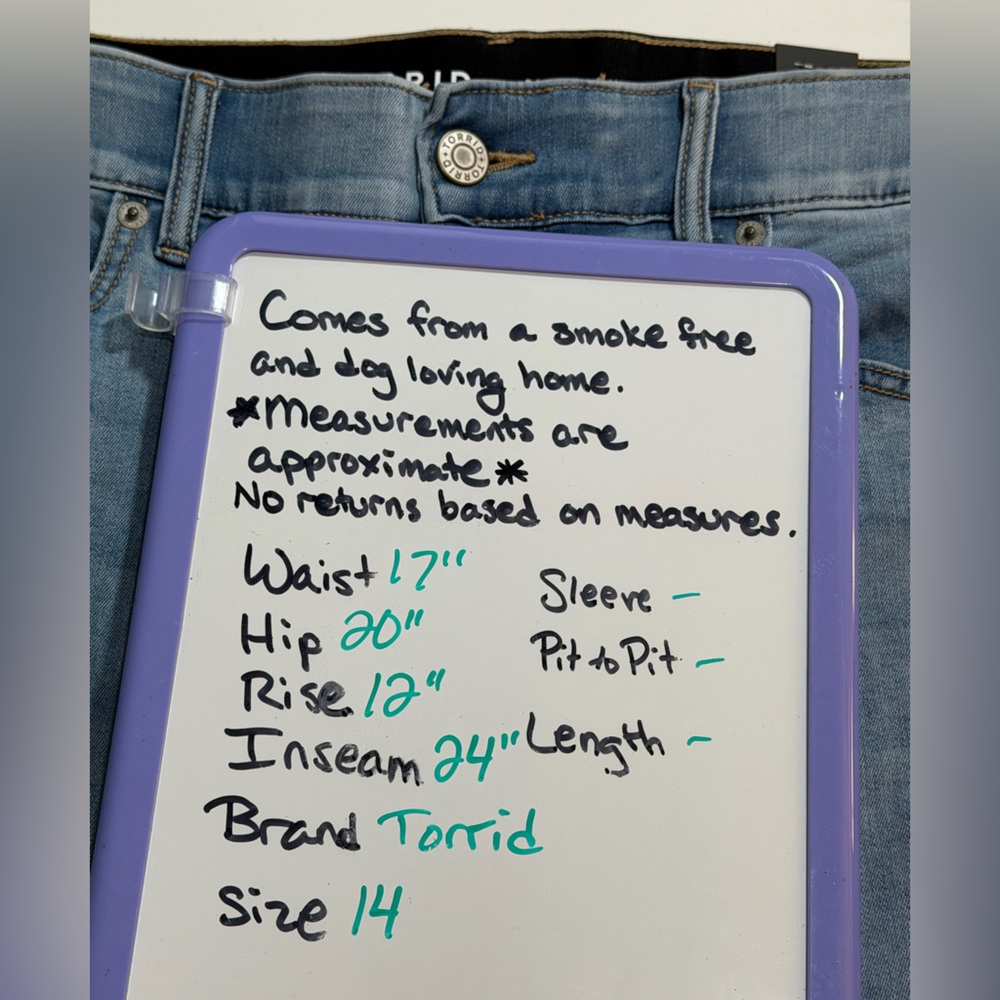 RID
TORRID TORRID
Comes from a smoke free
and dog loving home.
*Measurements are
approximate*
No returns based on measures.
Waist 17"
Hip 20"
Rise 12"
Inseam 24"
Sleeve -
Pit to Pit -
Length -
Brand Torrid
Size 14